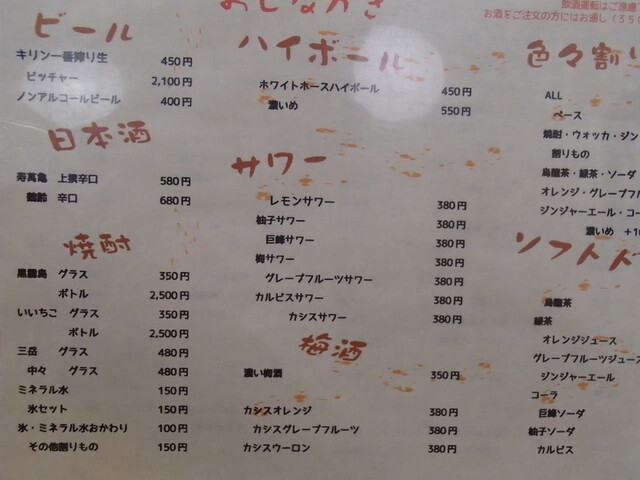 おしながき
飲酒運転はご遠慮
お酒をご注文の方にはお通し（350
ビール
キリン一番搾り生 450円
ピッチャー 2,100円
ノンアルコールビール 400円
日本酒
寿萬亀 上撰辛口 580円
鶴齢 辛口 680円
焼酎
黒霧島 グラス 350円
ボトル 2,500円
いいちこ グラス 350円
ボトル 2,500円
三岳 グラス 480円
中々 グラス 480円
ミネラル水 150円
氷セット 150円
氷・ミネラル水おかわり 100円
その他割りもの 150円
ハイボール
ホワイトホースハイボール 450円
濃いめ 550円
サワー
レモンサワー 380円
柚子サワー 380円
巨峰サワー 380円
梅サワー 380円
グレープフルーツサワー 380円
カルピスサワー 380円
カシスサワー 380円
梅酒
濃い梅酒 350円
カシスオレンジ 380円
カシスグレープフルーツ 380円
カシスウーロン 380円
色々割り
ALL
ベース
焼酎・ウォッカ・ジン
割りもの
烏龍茶・緑茶・ソーダ
オレンジ・グレープフル
ジンジャーエール・コー
濃いめ +10
ソフトド
烏龍茶
緑茶
オレンジジュース
グレープフルーツジュース
ジンジャーエール
コーラ
巨峰ソーダ
柚子ソーダ
カルピス